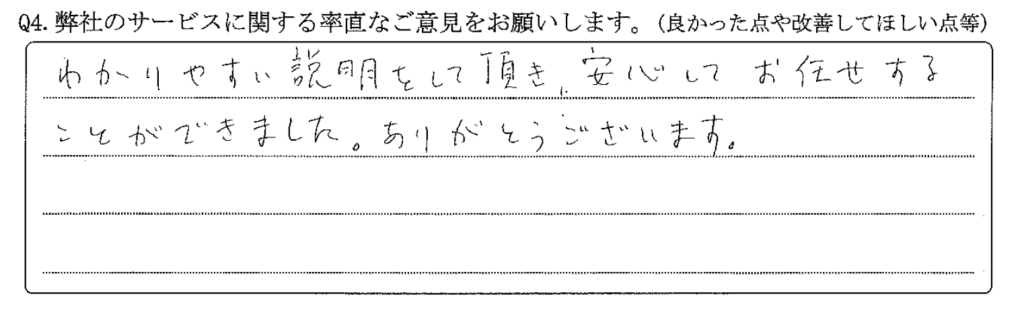 Q4. 弊社のサービスに関する率直なご意見をお願いします。（良かった点や改善してほしい点等）
わかりやすい説明をして頂き、安心してお任せする
ことができました。ありがとうございます。